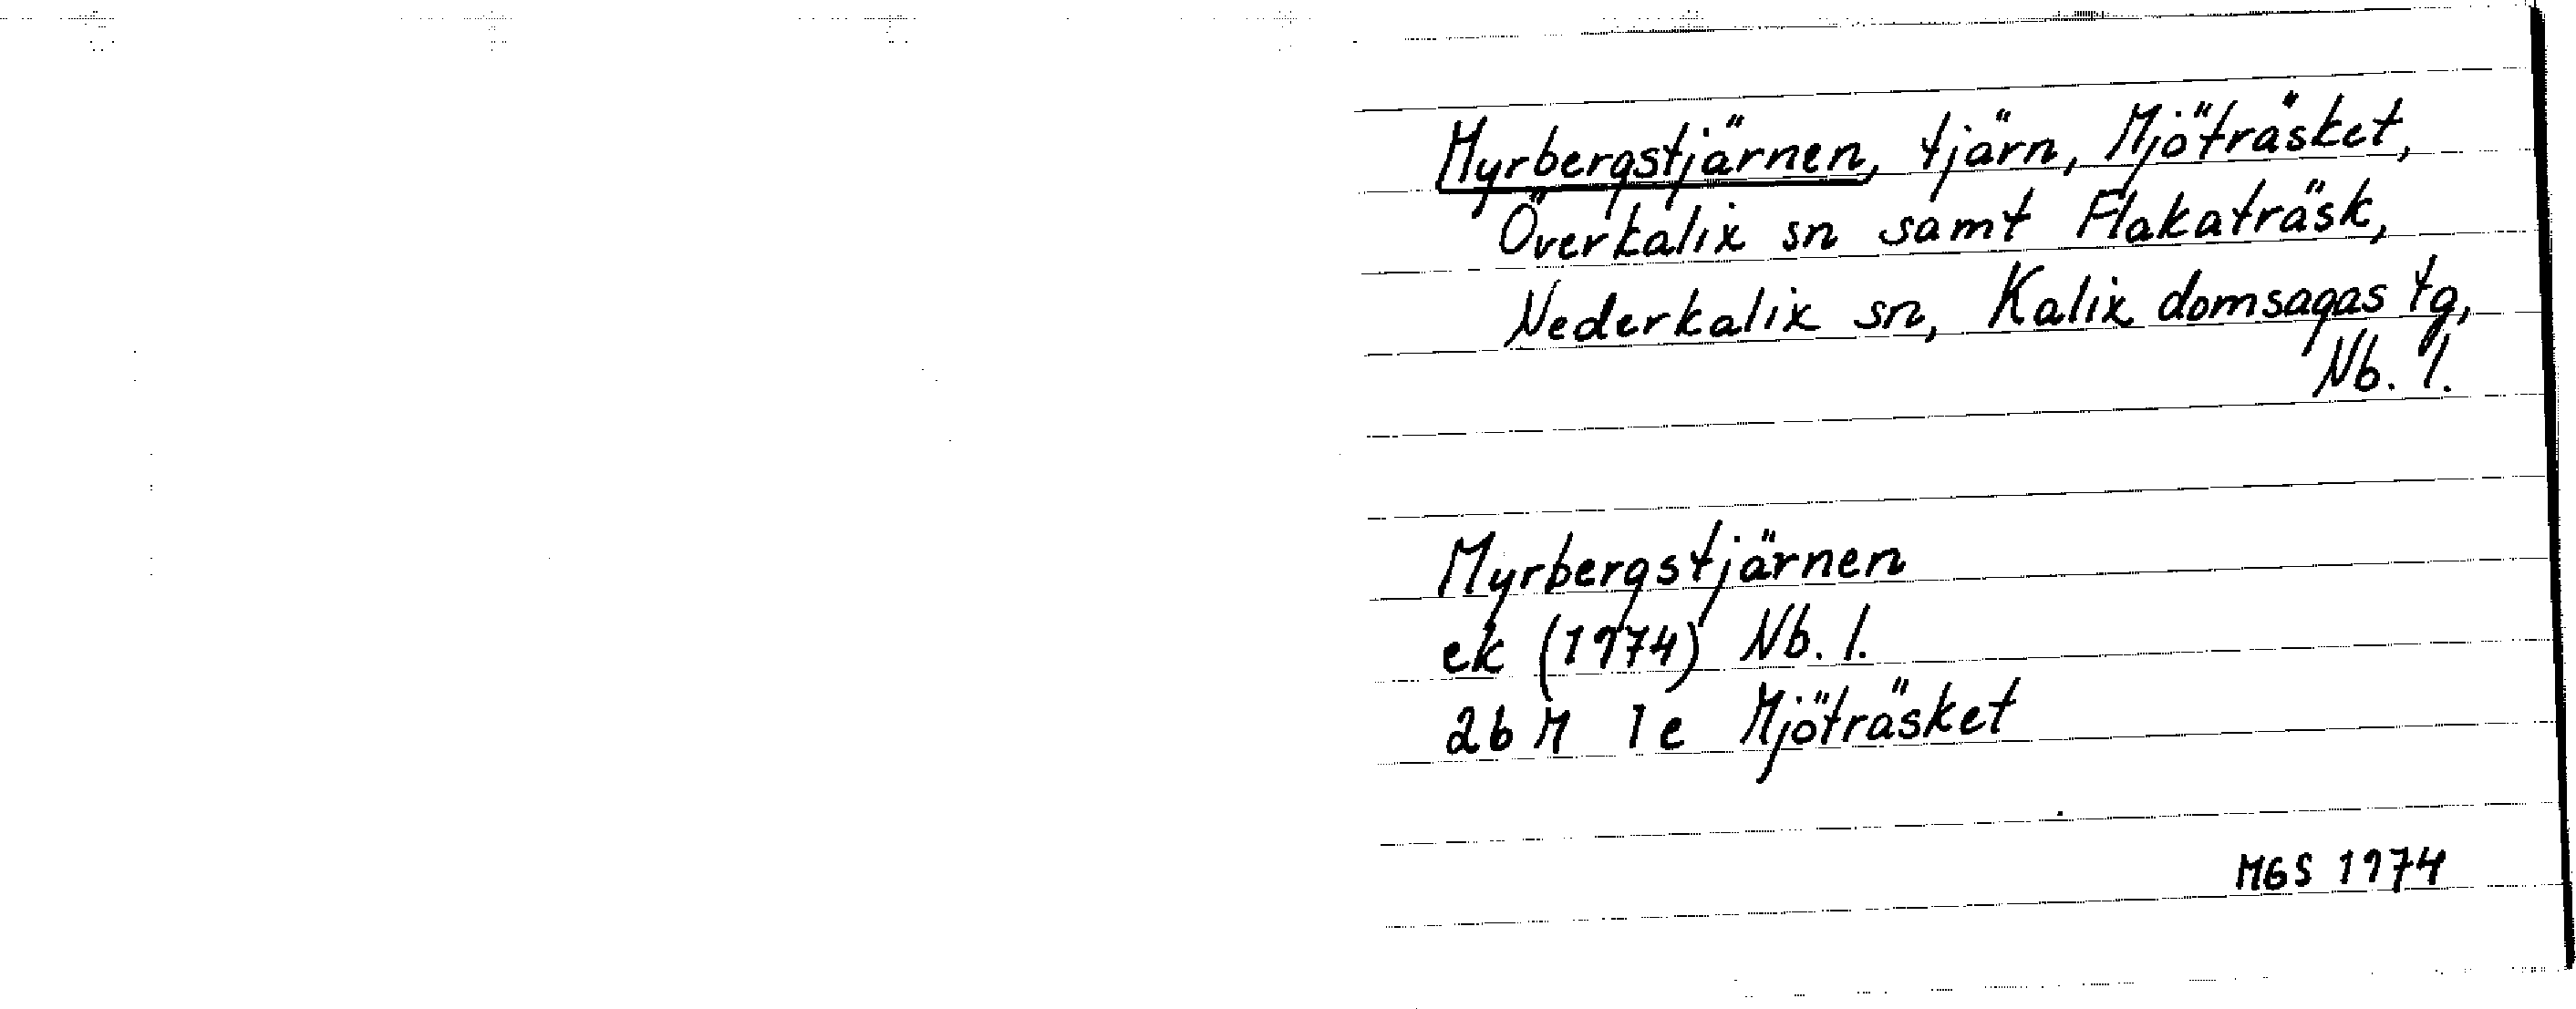 Myrbergstjärnen, tjärn, Mjöträsket,
Överkalix sn samt Flakaträsk,
Nederkalix sn, Kalix domsagas tg,
Nb. l.
Myrbergstjärnen
ek (1974) Nb. l.
26 M 1e Mjöträsket
MGS 1974